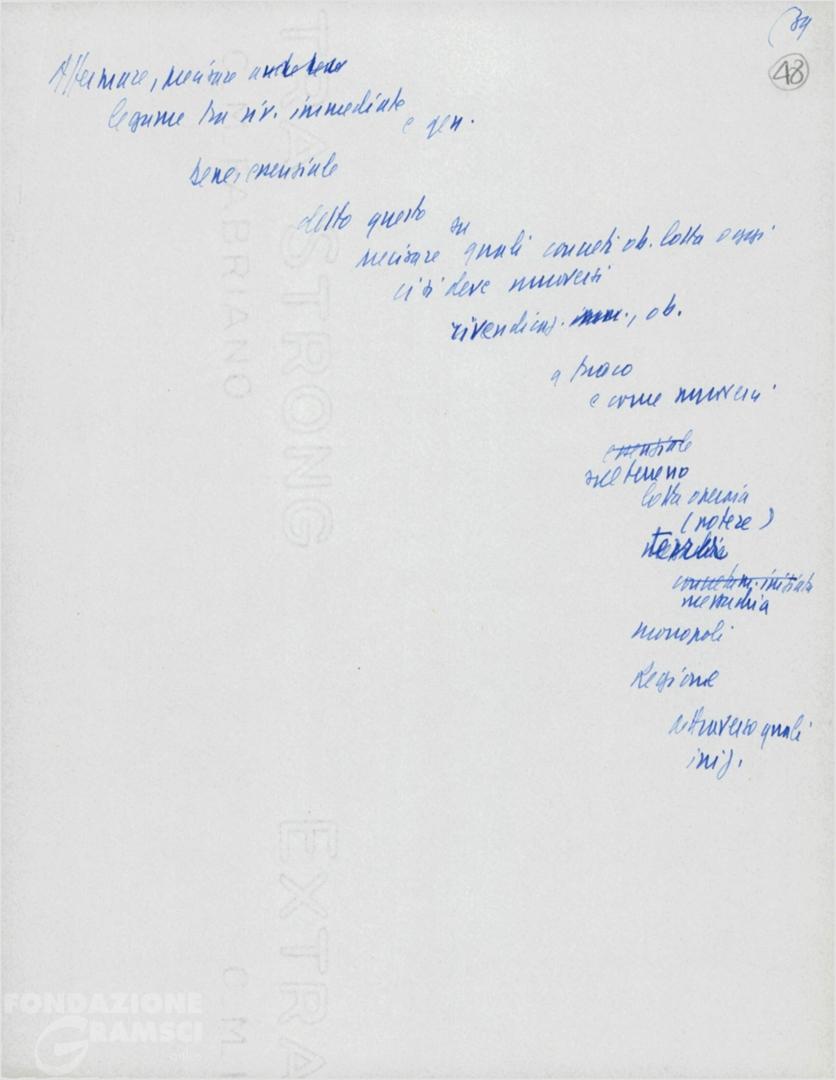 39
48
Affermare, precisare anche bene
legame tra riv. immediate e gen.
bene, essenziale
detto questo
precisare su quali concreti ob. lotta oggi
ci si deve muovere
rivendicaz. imm., ob.
e come muoversi
essenziale
sul terreno
lotta operaia
(potere)
mezzadria
monopoli
Regione
attraverso quali
iniz.
TRA STRONG
C.M. FABRIANO
EXTRA
C.M.
FONDAZIONE
GRAMSCI